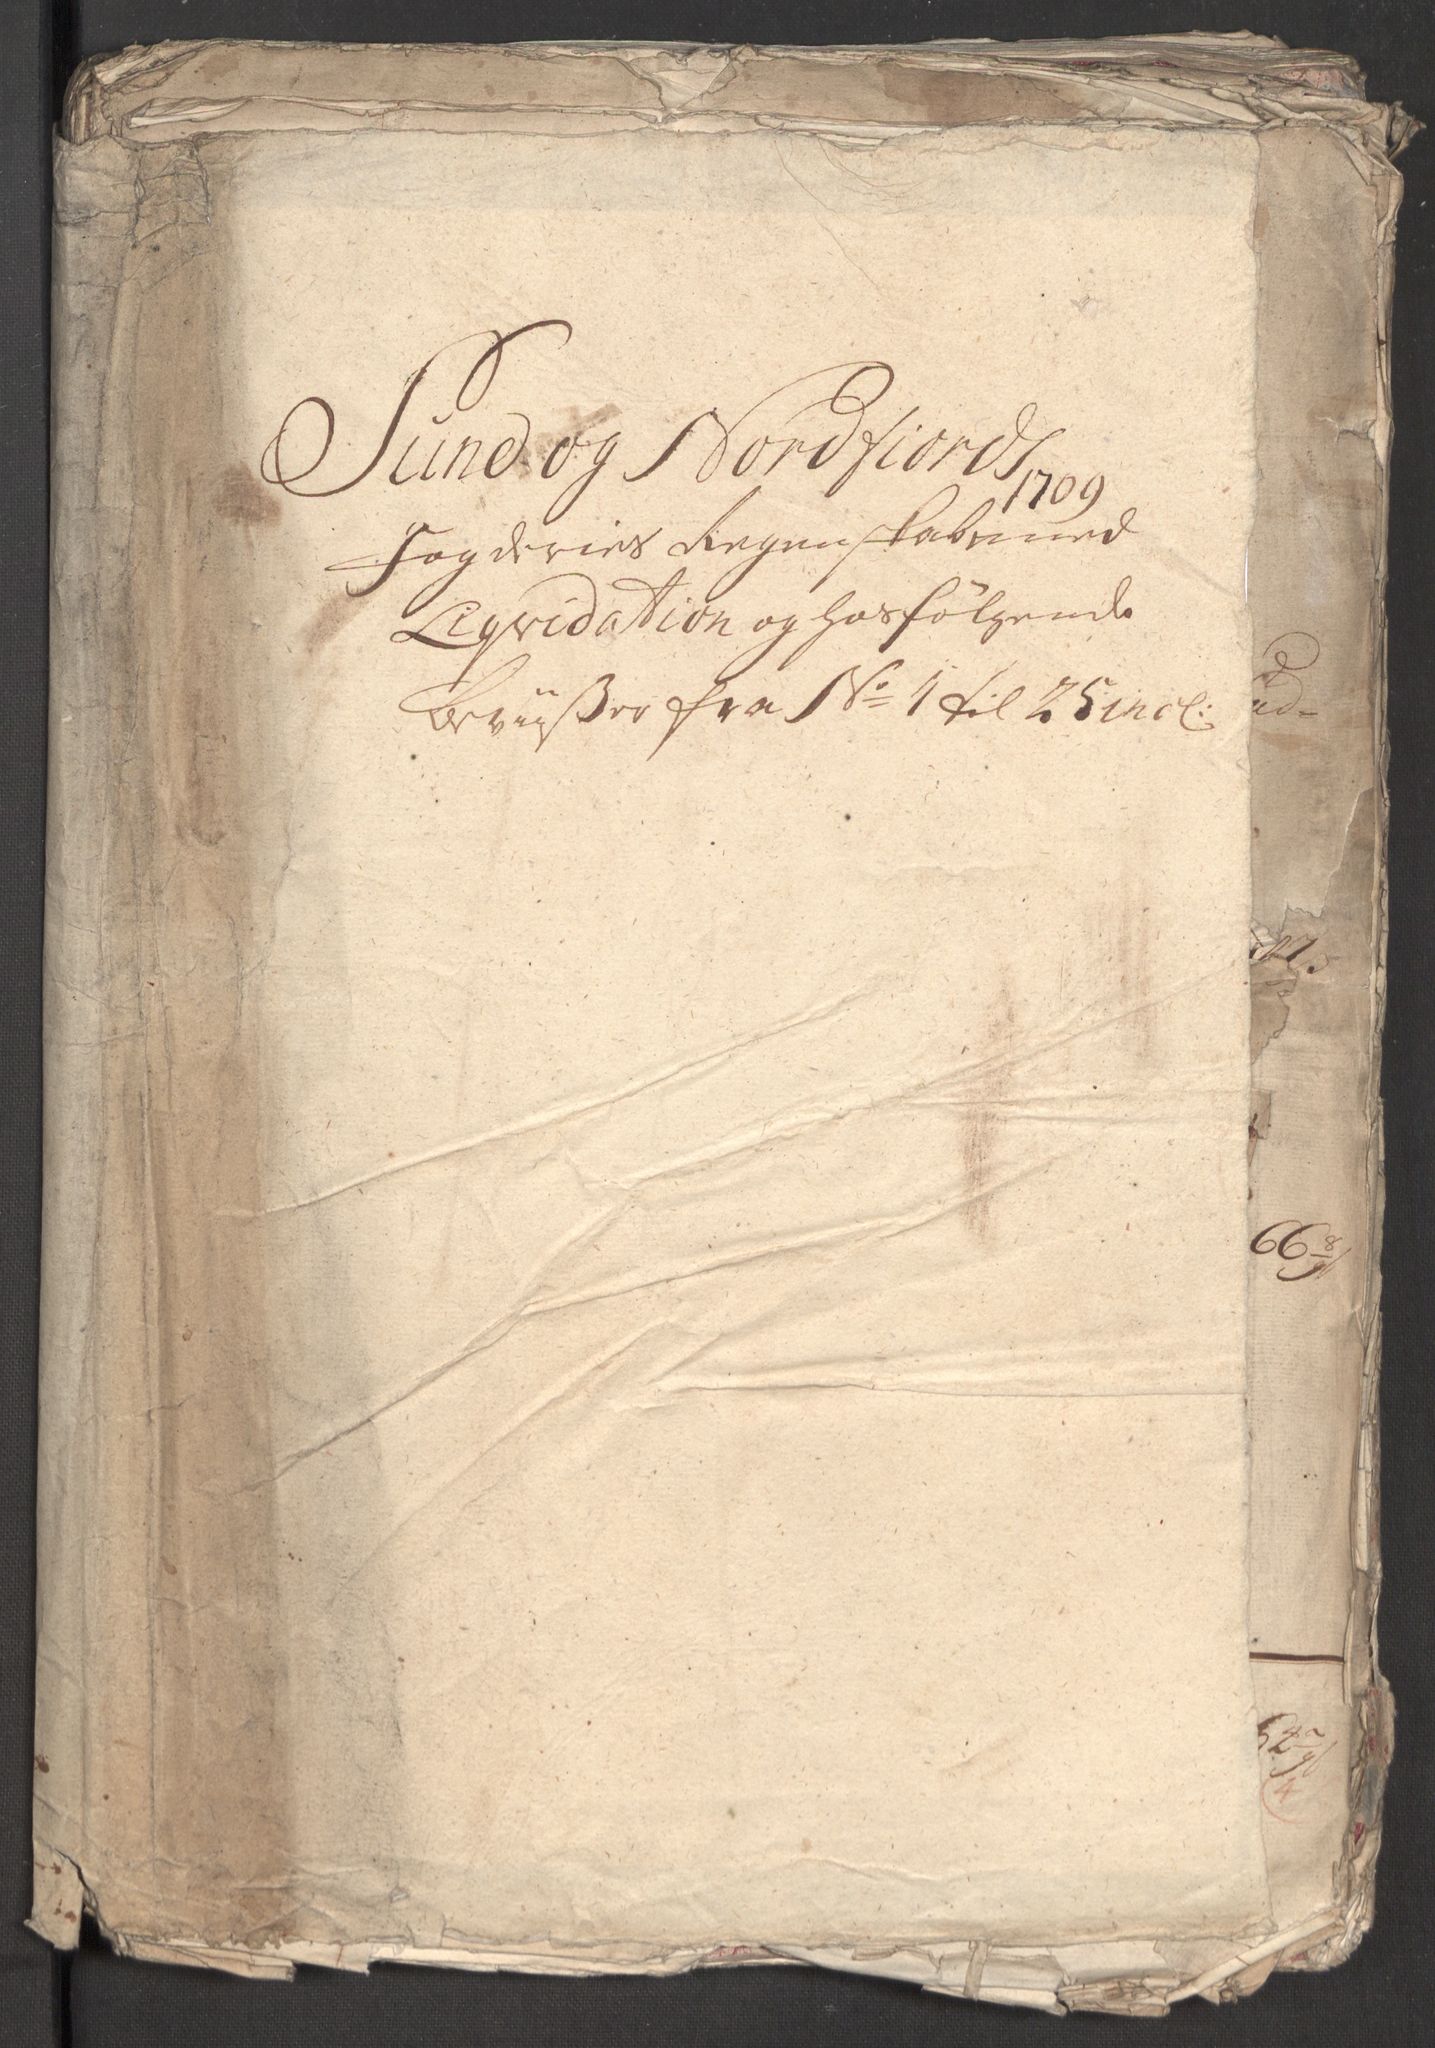 Sund og Nordfiords
1709
Fogderies Regenskab med
Liqvidation og hosfölgende
Beviißer fra No 1 til 25 incl:
ad-
66
52
4